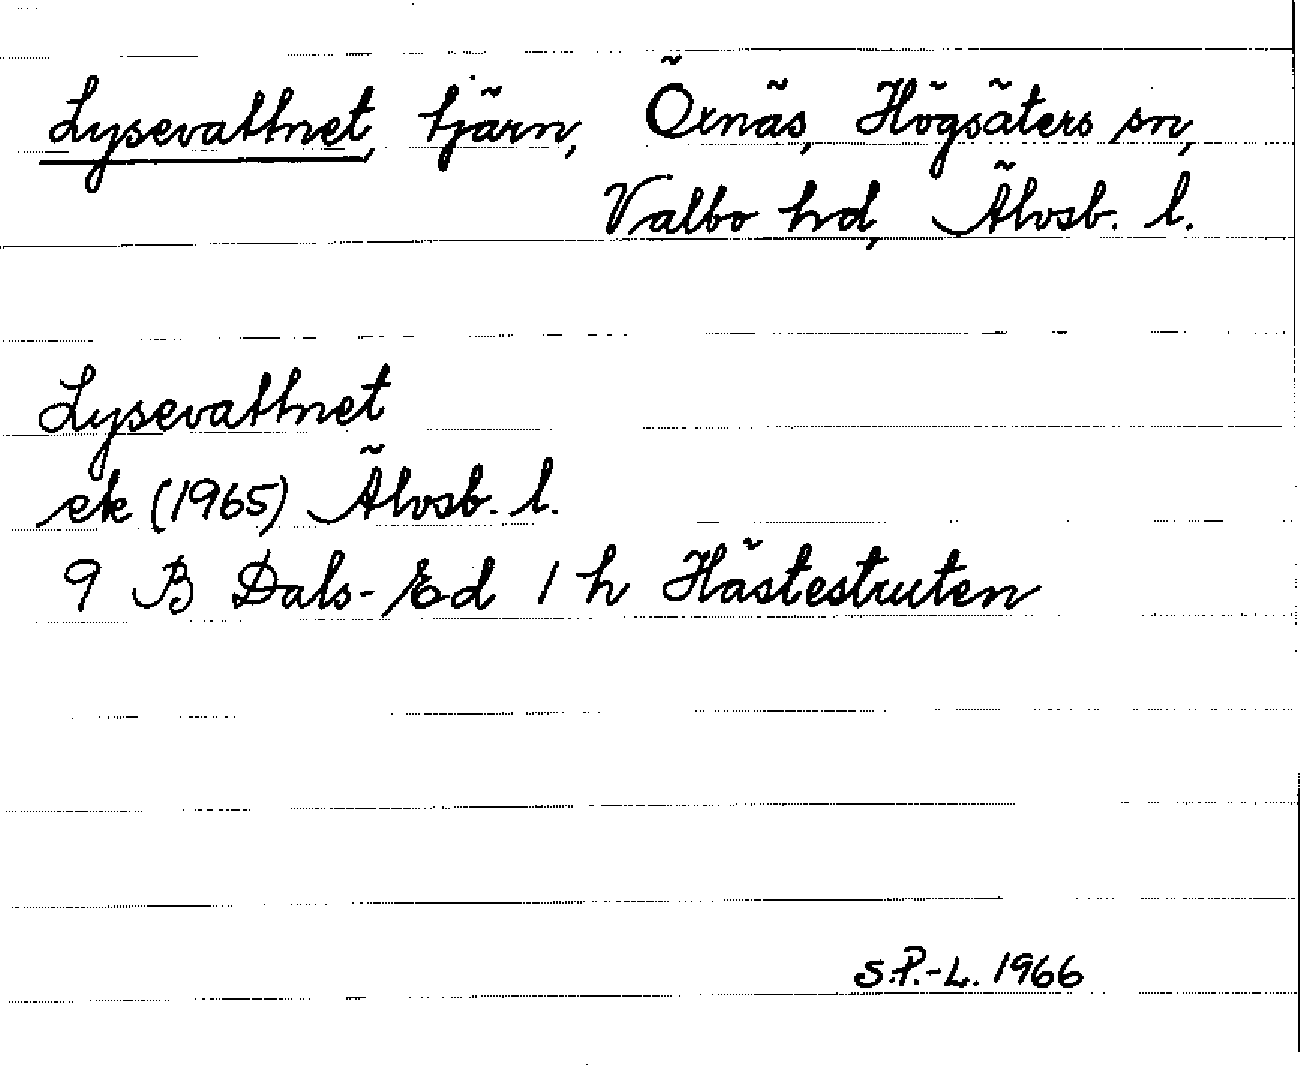 Lysevattnet, tjärn, Öxnäs, Högsäters sn,
Valbo hd, Älvsb. l.
Lysevattnet
ek (1965) Älvsb. l.
9 B Dals-Ed 1 h Hästestruten
S.P.-L. 1966